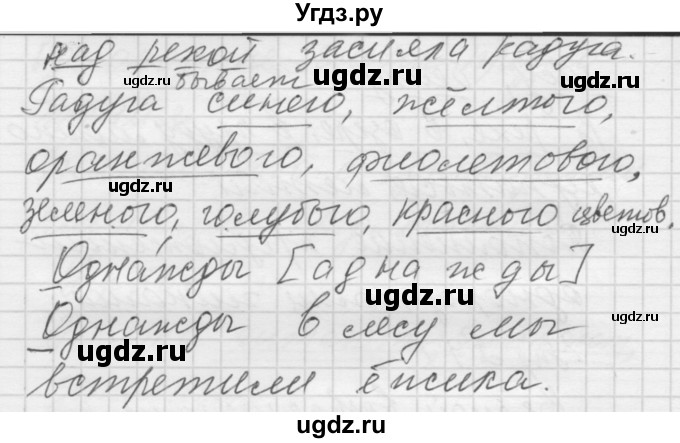 Угдз.ру
над рекой засияла радуга.
бывает
Радуга синего, жёлтого,
оранжевого, фиолетового,
зеленого, голубого, красного цветов.
Однажды [аднажды]
Однажды в лесу мы
встретили ёжика.
ugdz.ru
ugdz.ru
ugdz.ru
ugdz.ru
ugdz.ru
ugdz.ru
ugdz.ru
ugdz.ru
ugdz.ru
ugdz.ru
ugdz.ru